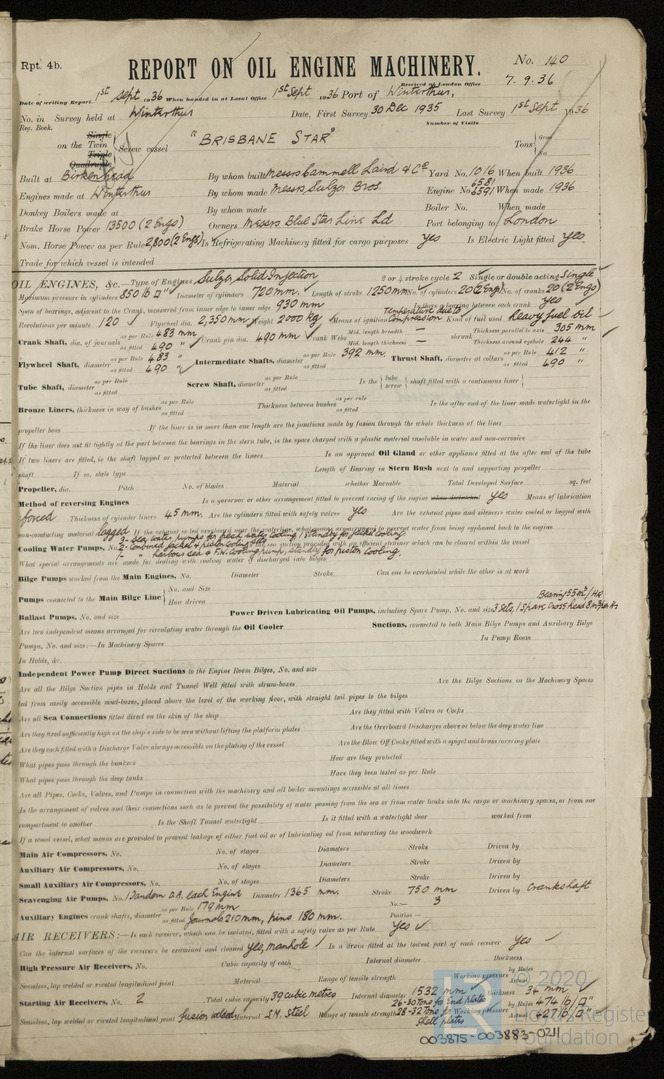 Rpt. 4b.
REPORT ON OIL ENGINE MACHINERY.
No. 140
Received at London Office
7. 9. 36
Date of writing Report 1st Sept 1936 When handed in at Local Office 1st Sept 1936 Port of Winterthur,
No. in Survey held at Winterthur Date, First Survey 30 Dec 1935 Last Survey 1st Sept 1936
Reg. Book. Number of Visits
Single
on the Twin Screw vessel "BRISBANE STAR" Tons Gross
Triple
Quadruple
Built at Birkenhead By whom built Messrs Cammell Laird & Co Yard No. 1016 When built 1936
Engines made at Winterthur By whom made Messrs Sulzer Bros. Engine No. 6581 6591 When made 1936
Donkey Boilers made at By whom made Boiler No. When made
Brake Horse Power 13500 (2 Engs) Owners Messrs Blue Star Line Ld Port belonging to London
Nom. Horse Power as per Rule 2,800 (2 Engs) Is Refrigerating Machinery fitted for cargo purposes Yes Is Electric Light fitted Yes.
Trade for which vessel is intended
OIL ENGINES, &c.—Type of Engines Sulzer Solid Injection 2 or 4 stroke cycle 2 Single or double acting Single
Maximum pressure in cylinders 850 lb □" Diameter of cylinders 720 mm. Length of stroke 1250 mm No. of cylinders 20 (2 Eng) No. of cranks 20 (2 Engs)
Span of bearings, adjacent to the Crank, measured from inner edge to inner edge 930 mm Is there a bearing between each crank Yes
Revolutions per minute 120 Flywheel dia. 2,350 mm Weight 2000 kg Means of ignition Temperature due to Compression Kind of fuel used Heavy fuel oil
Crank Shaft, dia. of journals as per Rule 483 mm as fitted 490 " Crank pin dia. 490 mm Crank Webs Mid. length breadth — Mid. length thickness — shrunk Thickness parallel to axis 305 mm Thickness around eyehole 244 "
Flywheel Shaft, diameter as per Rule 483 as fitted 490 " Intermediate Shafts, diameter as per Rule 392 mm. as fitted Thrust Shaft, diameter at collars as per Rule 412 " as fitted 490 "
Tube Shaft, diameter as per Rule as fitted Screw Shaft, diameter as per Rule as fitted Is the tube screw shaft fitted with a continuous liner
Bronze Liners, thickness in way of bushes as per Rule as fitted Thickness between bushes as per rule as fitted Is the after end of the liner made watertight in the
propeller boss If the liner is in more than one length are the junctions made by fusion through the whole thickness of the liner
If the liner does not fit tightly at the part between the bearings in the stern tube, is the space charged with a plastic material insoluble in water and non-corrosive
If two liners are fitted, is the shaft lapped or protected between the liners Is an approved Oil Gland or other appliance fitted at the after end of the tube
shaft If so, state type Length of Bearing in Stern Bush next to and supporting propeller
Propeller, dia. Pitch No. of blades Material whether Moveable Total Developed Surface sq. feet
Method of reversing Engines Is a governor or other arrangement fitted to prevent racing of the engine Yes Means of lubrication
forced Thickness of cylinder liners 45 mm. Are the cylinders fitted with safety valves Yes Are the exhaust pipes and silencers water cooled or lagged with
non-conducting material lagged If the exhaust is led overboard near the waterline, what means are arranged to prevent water from being syphoned back to the engine
Cooling Water Pumps, No. 3 - Sea water pumps for fresh water cooling, 1 standby for jacket cooling.
2 - Combined jacket & piston cooling
1 - " harbour sea & F.W. Cooling pump, standby for piston cooling.
What special arrangements are made for dealing with cooling water if discharged into bilges
Bilge Pumps worked from the Main Engines, No. Diameter Stroke Can one be overhauled while the other is at work
Pumps connected to the Main Bilge Line No. and Size How driven
Ballast Pumps, No. and size Power Driven Lubricating Oil Pumps, including Spare Pump, No. and size 3 Sets, 1 Spare
Are two independent means arranged for circulating water through the Oil Cooler Suctions, connected to both Main Bilge Pumps and Auxiliary Bilge
Pumps, No. and size:—In Machinery Spaces In Pump Room
In Holds, &c.
Independent Power Pump Direct Suctions to the Engine Room Bilges, No. and size
Are all the Bilge Suction pipes in Holds and Tunnel Well fitted with strum-boxes Are the Bilge Suctions in the Machinery Spaces
led from easily accessible mud-boxes, placed above the level of the working floor, with straight tail pipes to the bilges
Are all Sea Connections fitted direct on the skin of the ship Are they fitted with Valves or Cocks
Are they fixed sufficiently high on the ship's side to be seen without lifting the platform plates Are the Overboard Discharges above or below the deep water line
Are they each fitted with a Discharge Valve always accessible on the plating of the vessel Are the Blow Off Cocks fitted with a spigot and brass covering plate
What pipes pass through the bunkers How are they protected
What pipes pass through the deep tanks Have they been tested as per Rule
Are all Pipes, Cocks, Valves, and Pumps in connection with the machinery and all boiler mountings accessible at all times
Is the arrangement of valves and their connections such as to prevent the possibility of water passing from the sea or from water tanks into the cargo or machinery spaces, or from one
compartment to another Is the Shaft Tunnel watertight Is it fitted with a watertight door worked from
If a wood vessel, what means are provided to prevent leakage of either fuel oil or of lubricating oil from saturating the woodwork
Main Air Compressors, No. No. of stages Diameters Stroke Driven by
Auxiliary Air Compressors, No. No. of stages Diameters Stroke Driven by
Small Auxiliary Air Compressors, No. No. of stages Diameters Stroke Driven by
Scavenging Air Pumps, No. 1 Tandem D.A. each Engine Diameter 1365 mm. Stroke 750 mm Driven by Crankshaft
Auxiliary Engines crank shafts, diameter as per Rule 179 mm as fitted Journals 210 mm, pins 180 mm. No. 3 Position
AIR RECEIVERS:—Is each receiver, which can be isolated, fitted with a safety valve as per Rule Yes
Can the internal surfaces of the receivers be examined and cleaned Yes, manhole Is a drain fitted at the lowest part of each receiver Yes
High Pressure Air Receivers, No. Cubic capacity of each Internal diameter thickness
Seamless, lap welded or riveted longitudinal joint Material Range of tensile strength Working pressure by Rules Actual
Starting Air Receivers, No. 2 Total cubic capacity 39 cubic metres Internal diameter 1532 mm thickness 36 mm.
Seamless, lap welded or riveted longitudinal joint fusion welded Material S.M. steel Range of tensile strength 26-30 Tons for End plates 28-32 Tons for Shell plates Working pressure by Rules 474 lb/□" Actual 427 lb/□"
© 2020
Lloyd's Register
Foundation
003875-003883-0211